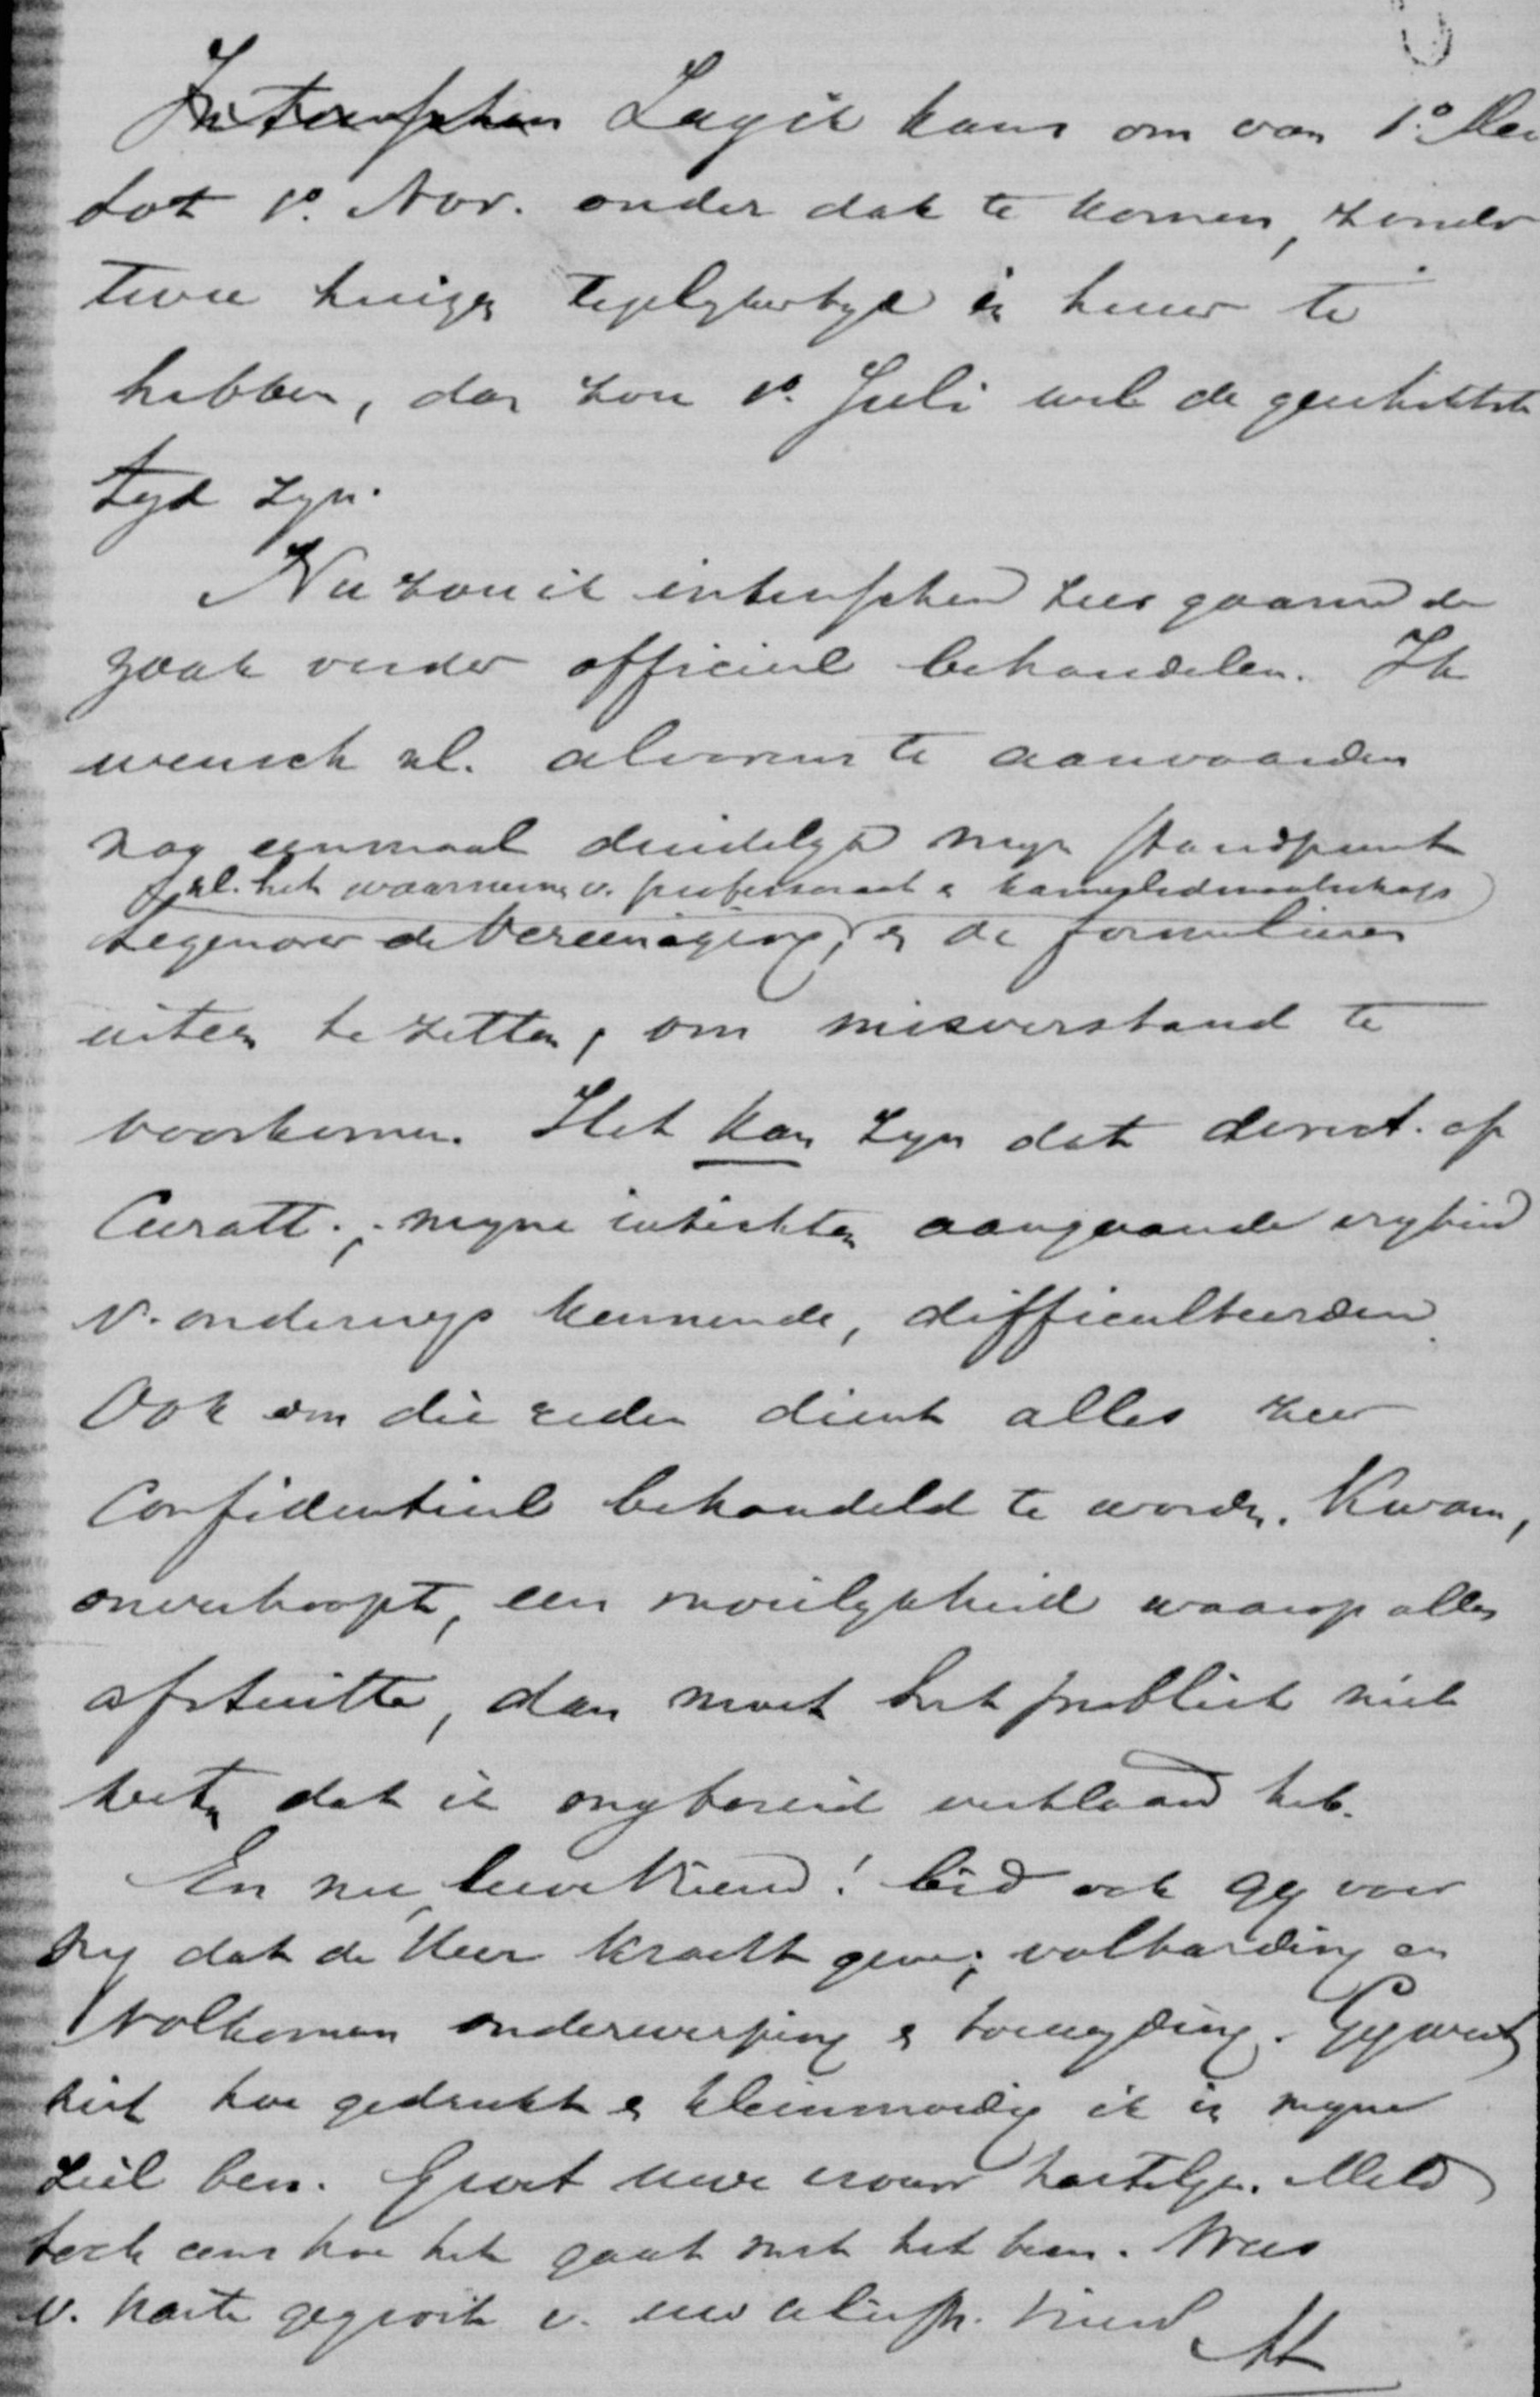 Intusschen Zag ik kans om van 1º Mei
tot 1º. Nov. onder dak te komen, zonder
twee huizen tegelykertyd in huur te
hebben, dan zou 1º. Juli wel de geschiktste
tyd zyn.
Nu zou ik intusschen zeer gaarne de
zaak verder officieel behandelen. Ik
wensch nl. alvorens te aanvaarden
nog eenmaal duidelyk myn standpunt
(nl. het waarnemen v. professoraat & kamerlidmaatschap)
tegenover de Vereeniging, & de formulieren
uiteen te zetten, om misverstand te
voorkomen. Het kan zyn dat direct. of
Curatt., myne inzichten aangaande vryheid
v. onderwys kennende, difficulteerden.
Ook om die reden dient alles zeer
Confidentieel behandeld te worden. Kwam,
onverhoopt, een moeilykheid waarop alles
afstuitte, dan moet het publiek niet
weten dat ik my bereid verklaard heb.
En nu, lieve Vriend! bid ook gy voor
my dat de Heer kracht geve, volharding en
volkomen onderwerping & toewyding. Gy weet
niet hoe gedrukt & kleinmoedig ik in myne
ziel ben. Groet uwe vrouw hartelyk. Meld
toch eens hoe het gaat met het been. Wees
v. harte gegroet v. uw liefh. vriend